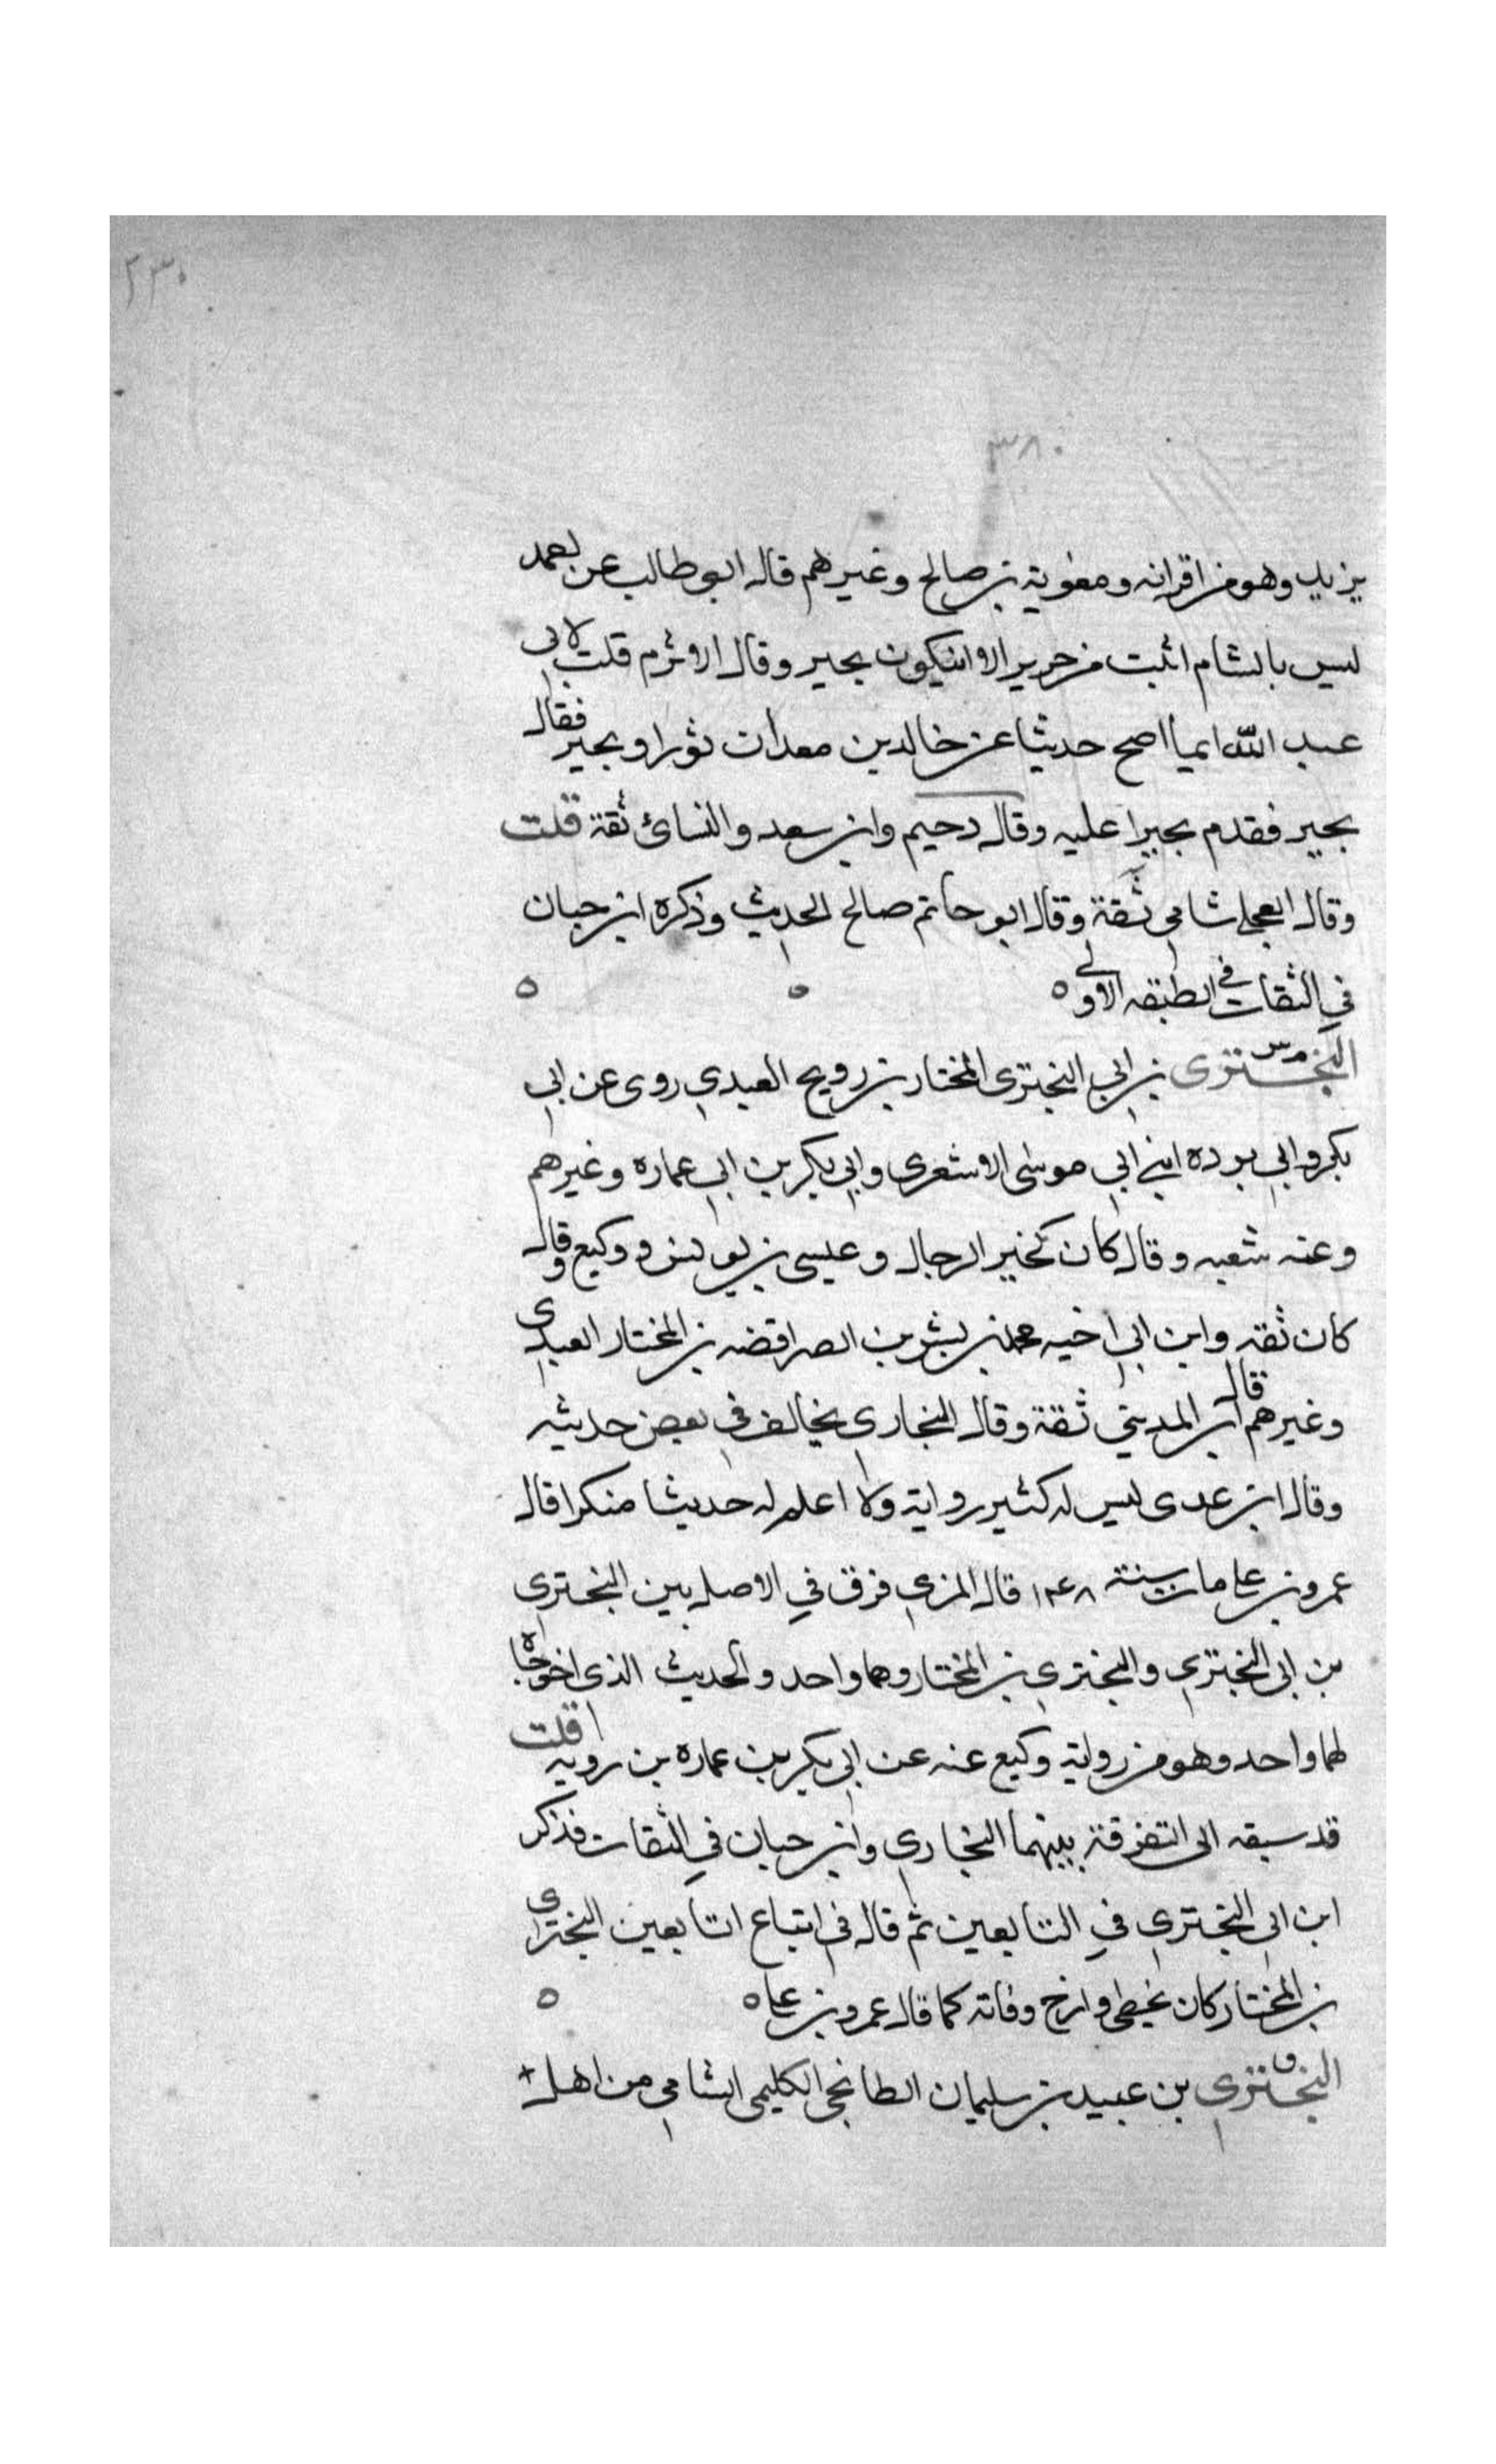 ٢٣٠
٣٨٠
يزيد وهو من اقرانه ومعوية بن صالح وغيرهم قال ابو طالب عن احمد
ليس بالشام اثبت من حرير الا ان يكون بحير وقال الاثرم قلت لابي
عبد الله ايما اصح حديثا عن خالد بن معدان ثور او بحير فقال
بحير فقدم بحيرا عليه وقال دحيم وابن سعد والنسائ ثقة قلت
وقال العجلي شامي ثقة وقال ابو حاتم صالح الحديث وذكره ابن حبان
في الثقات في الطبقه الاولى ه ه ه
البختري بن ابي البختري المختار بن رويح العبدي روى عن ابي
بكر وابي برده ابني ابي موسى الاشعري وابي بكر بن ابي عماره وغيرهم
وعنه شعبه وقال كان كخير الرجال وعيسى بن يونس ووكيع وقال
كان ثقه وابن ابي اخيه محمد بن بشر بن الفرافضه بن المختار العبدي
وغيرهم قال ابن المديني ثقة وقال البخاري يخالف في بعض حديثه
وقال ابن عدى ليس له كثير رواية ولا اعلم له حديثا منكرا قال
عمرو بن علي مات سنة ١٤٨ قال المزي فرق في الاصل بين البختري
بن ابي البختري والبختري بن المختار وهما واحد والحديث الذي اخرجاه
لهما واحد وهو من رواية وكيع عنه عن ابي بكر بن عماره بن رويبه قلت
قد سبقه الى التفرقة بينهما البخاري وابن حبان في الثقات فذكر
ابن ابي البختري في التابعين ثم قال في اتباع التابعين البختري
بن المختار كان يخطي وارخ وفاته كما قال عمرو بن علي ه ه
البختري بن عبيد بن سليمان الطابخي الكلبي الشامي من اهل